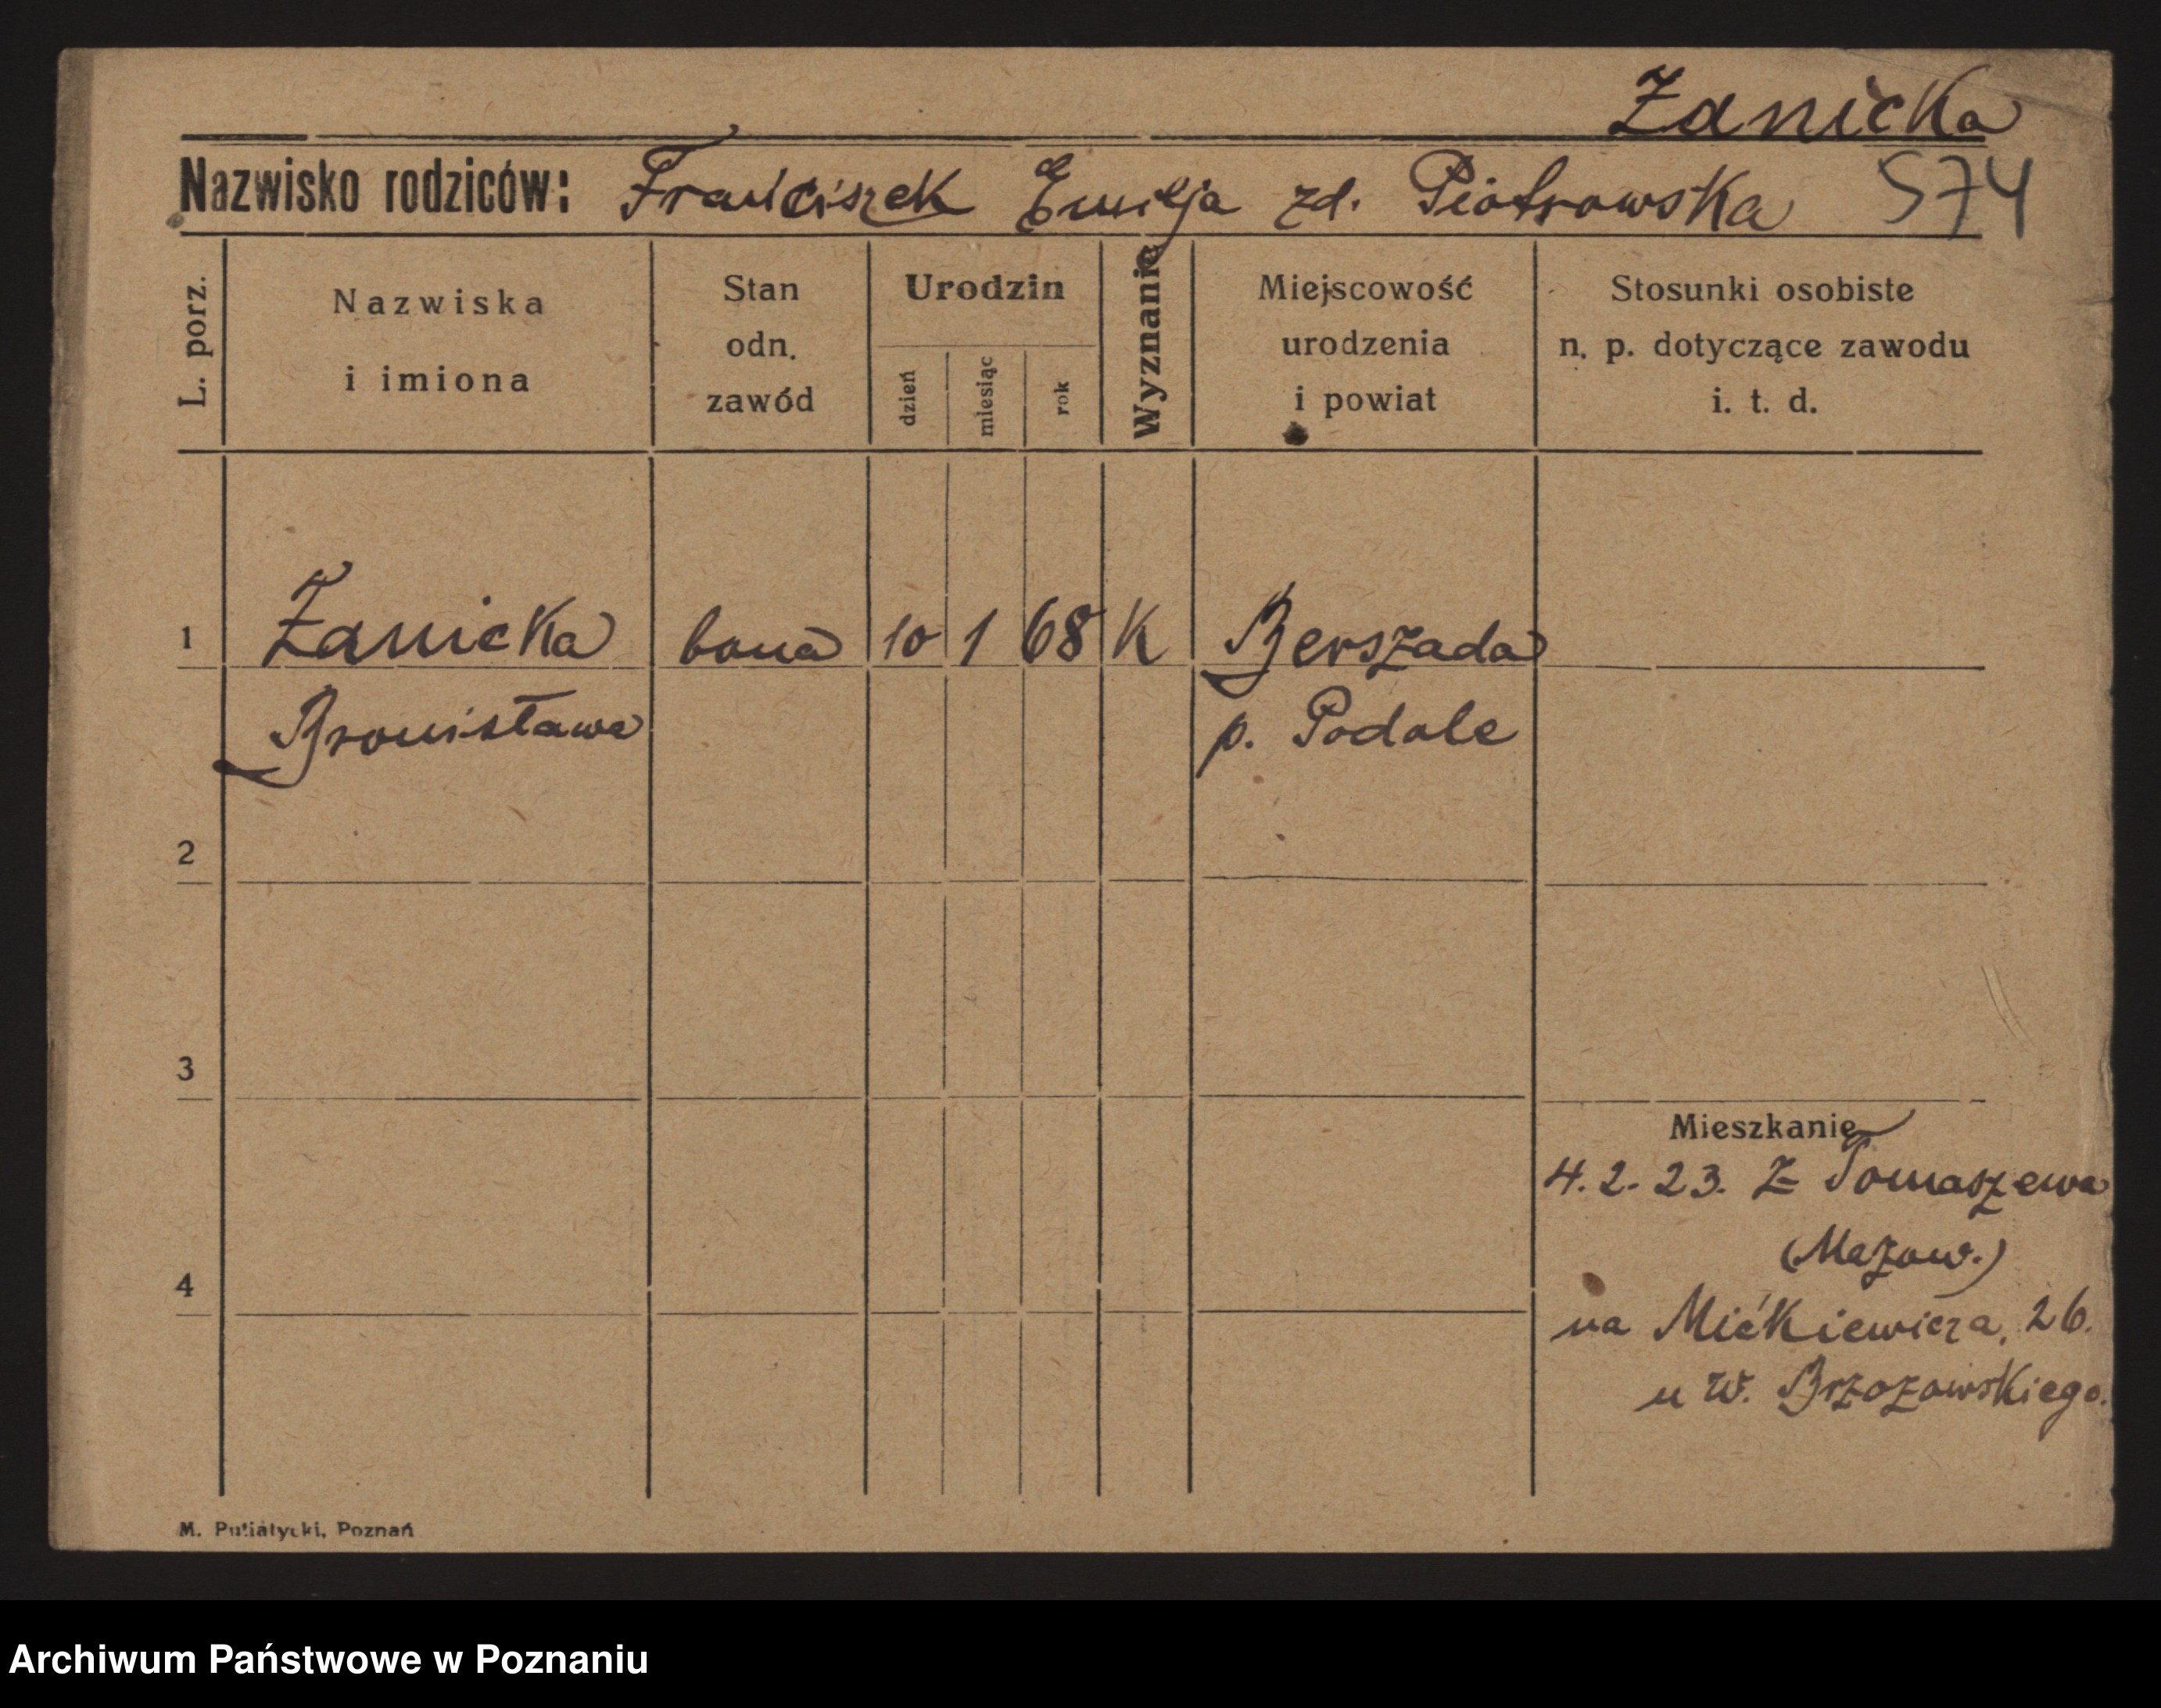 Zanicka
Nazwisko rodziców: Franciszek Emilja zd. Piotrowska 574
L. porz.
Nazwiska
i imiona
Stan
odn.
zawód
Urodzin
dzień
miesiąc
rok
Wyznanie
Miejscowość
urodzenia
i powiat
Stosunki osobiste
n. p. dotyczące zawodu
i. t. d.
1 Zanicka bona 10 1 68 K Berszada
Bronisława p. Podole
2
3
Mieszkanie
4.2.23. z Tomaszewa
(Mazow.)
4
na Mickiewicza, 26.
u W. Brzozowskiego.
M. Putiatycki, Poznań
Archiwum Państwowe w Poznaniu